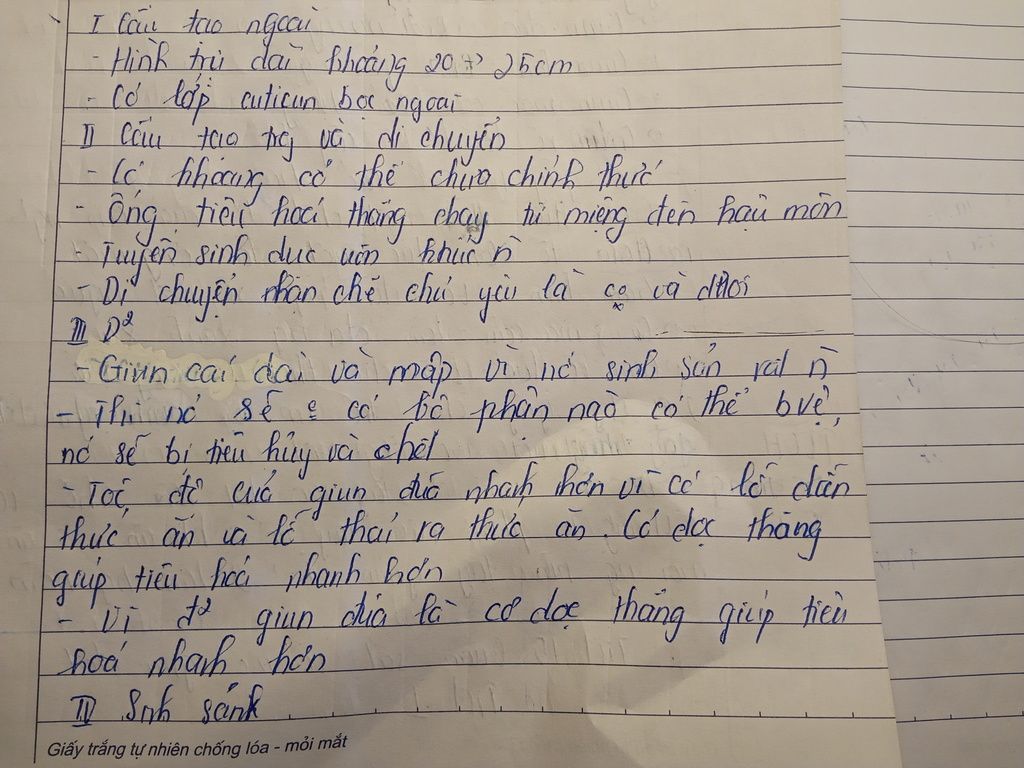 I Cấu tạo ngoài
- Hình trụ dài khoảng 20 → 25cm
- Có lớp cuticun bọc ngoài
II Cấu tạo trg và di chuyển
- Có khoang cơ thể chưa chính thức
- Ống tiêu hoá thẳng chạy từ miệng đến hậu môn
- Tuyến sinh dục uốn khúc n
- Di chuyển nhạn chế chủ yếu là co và duỗi
III D²
- Giun cái dài và mập vì nó sinh sản rất n
- Thì nó sẽ có bộ phận nào có thể bvệ,
nó sẽ bị tiêu hủy và chết
- Tốc độ của giun đũa nhanh hơn vì có lỗ dẫn
thức ăn và lỗ thải ra thức ăn. Cơ dọc thẳng
giúp tiêu hoá nhanh hơn
- Vì đ² giun đũa là cơ dọc thẳng giúp tiêu
hoá nhanh hơn
IV Snh sảnh
Giấy trắng tự nhiên chống lóa - mỏi mắt